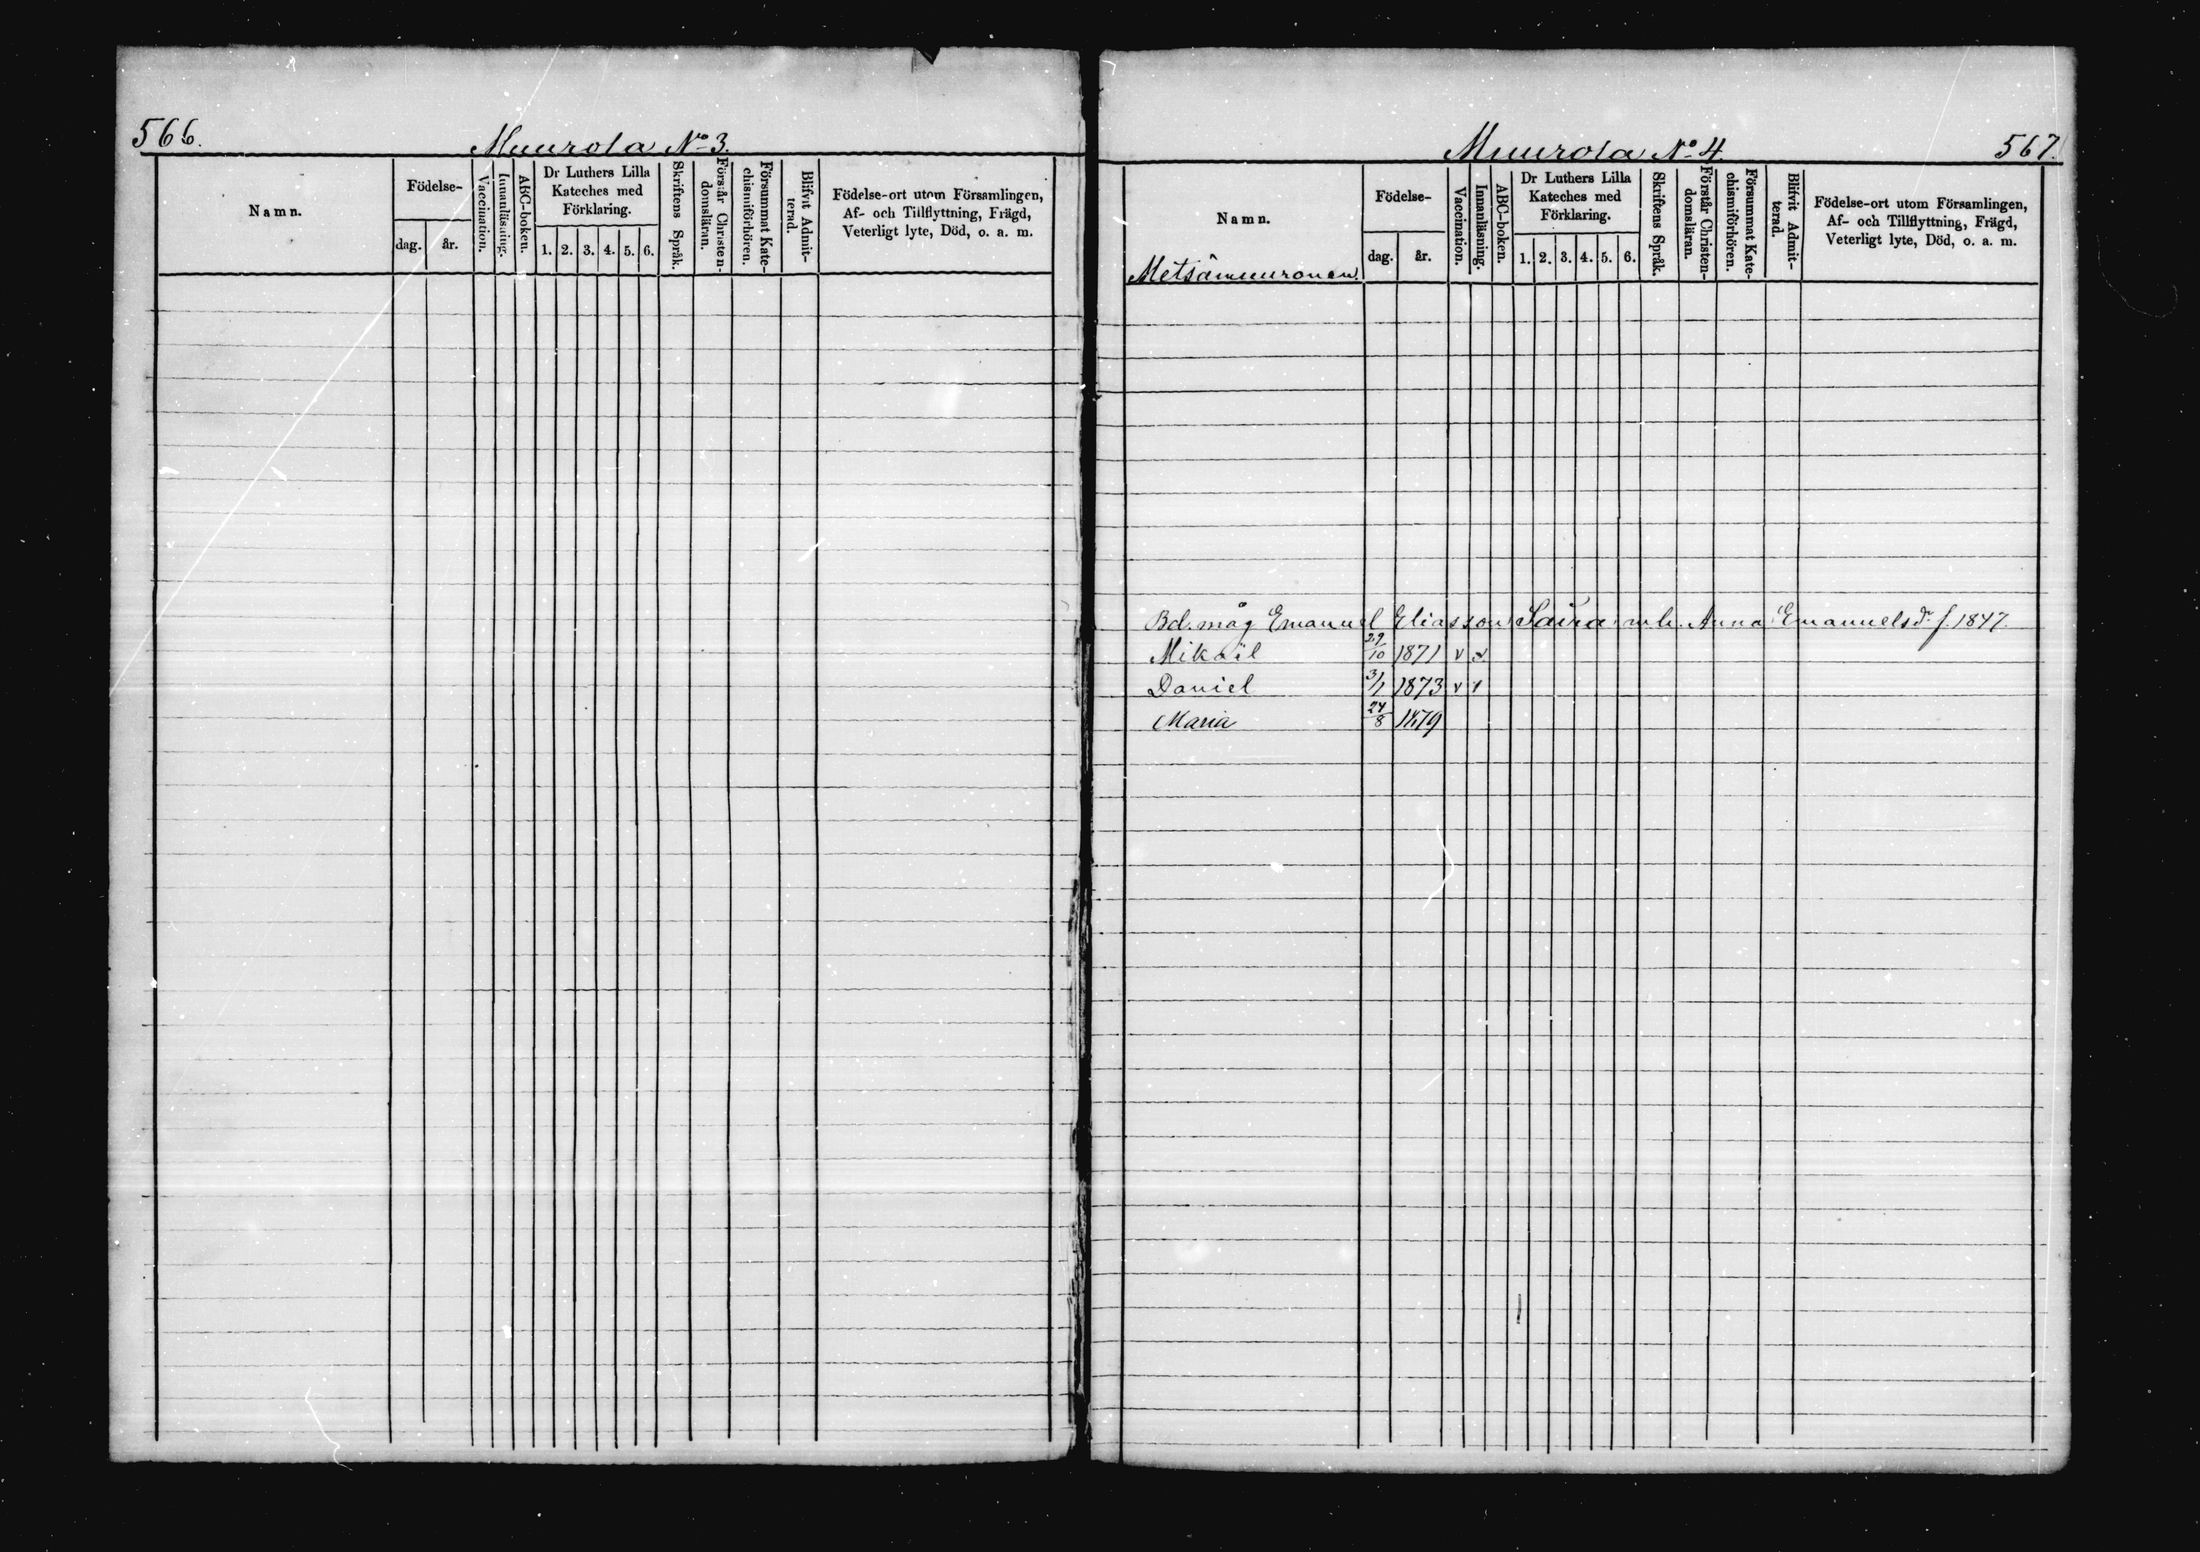 566.
Muurola No 3.
Namn.
Födelse-
dag.
år.
Vaccination.
Innanläsning.
ABC-boken.
Dr Luthers Lilla
Kateches med
Förklaring.
1. 2. 3. 4. 5. 6.
Skriftens Språk.
Förstår Christen-
domsläran.
Försummat Kate-
chismiförhören.
Blifvit Admit-
terad.
Födelse-ort utom Församlingen,
Af- och Tillflyttning, Frägd,
Veterligt lyte, Död, o. a. m.
Muurola No 4.
567.
Namn.
Metsämuuronen.
Födelse-
dag.
år.
Vaccination.
Innanläsning.
ABC-boken.
Dr Luthers Lilla
Kateches med
Förklaring.
1. 2. 3. 4. 5. 6.
Skriftens Språk.
Förstår Christen-
domsläran.
Försummat Kate-
chismiförhören.
Blifvit Admit-
terad.
Födelse-ort utom Församlingen,
Af- och Tillflyttning, Frägd,
Veterligt lyte, Död, o. a. m.
Bd. måg Emanuel Eliasson Saira m.h. Anna Emanuelsdr f. 1847.
Mikaël 29/10 1871 v v
Daniel 3/1 1873 v v
Maria 24/8 1879